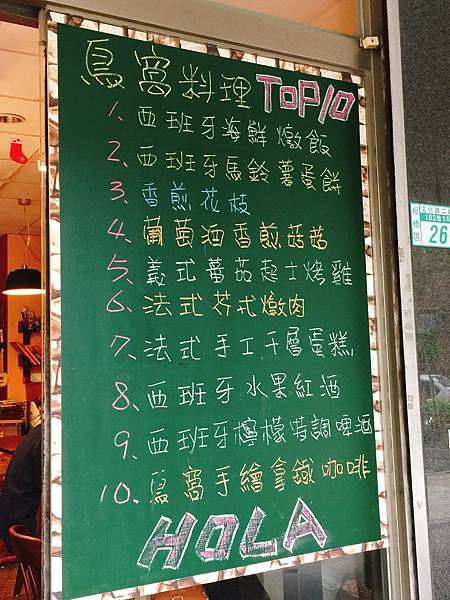 鳥窩料理 TOP10
1. 西班牙海鮮燉飯
2. 西班牙馬鈴薯蛋餅
3. 香煎花枝
4. 葡萄酒香煎菇菇
5. 義式蕃茄起士烤雞
6. 法式芥 燉肉
7. 法式手工千層蛋糕
8. 西班牙水果紅酒
9. 西班牙檸檬特調啤酒
10. 鳥窩手繪拿鐵咖啡
HOLA
板橋區
文化路二
182巷1
26